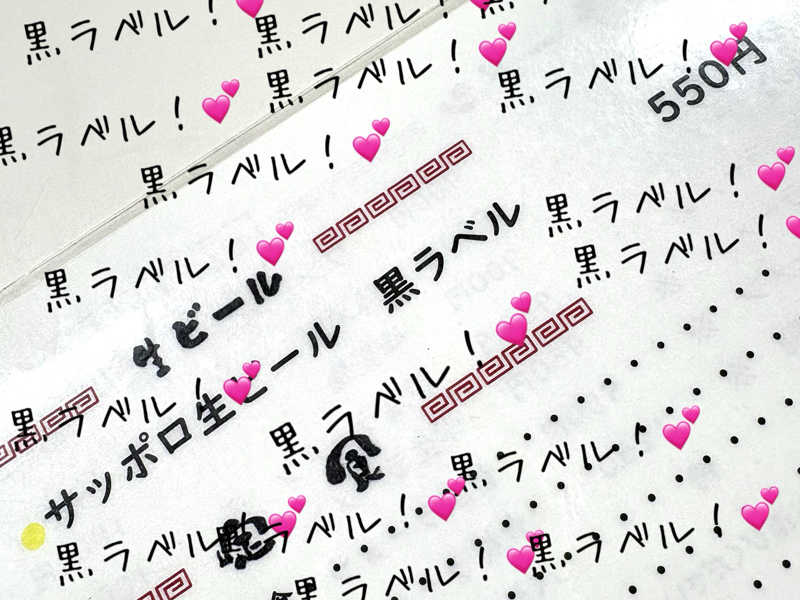 黒ラベル!💕
黒ラベル!
黒ラベル!💕
黒ラベル!💕
550円
黒ラベル!💕
黒ラベル!💕
黒ラベル!💕
黒ラベル!💕
黒ラベル!💕
生ビール
サッポロ生ビール 黒ラベル
黒ラベル!💕
黒ラベル!💕
黒ラベル!💕
黒ラベル!💕
黒ラベル!💕
黒ラベル!💕
黒ラベル!💕
食